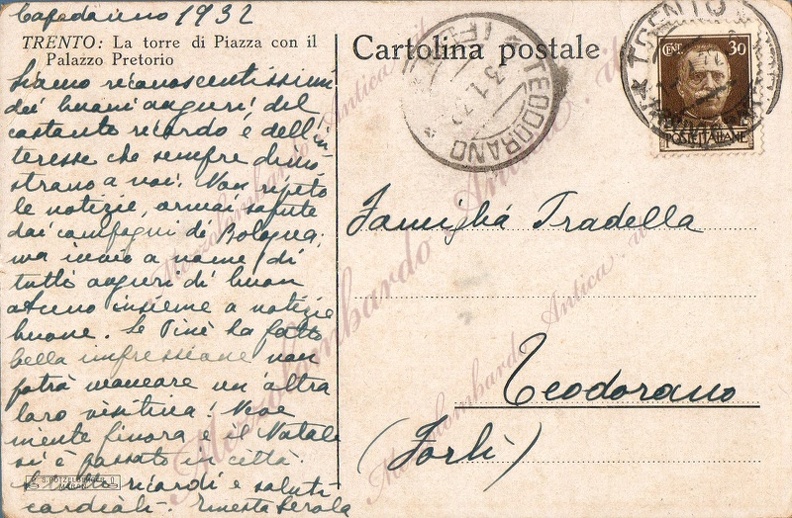 Capodanno 1932
TRENTO: La torre di Piazza con il
Palazzo Pretorio
Cartolina postale
TEODORANO
TRENTO
CENT. 30
POSTE ITALIANE
Siamo riconoscentissimi
dei buoni auguri del
costante ricordo e dell'in
teresse che sempre dimo
strano a noi. Non ripeto
le notizie, ormai sapute
dai compagni di Bologna,
ma invio a nome di
tutti auguri di buon
Anno insieme a notizie
buone. Se Pinè ha fatto
bella impressione non
potrà mancare un'altra
loro visitina! Neve
niente finora e il Natale
si è passato in città.
ricordi e saluti
cordiali. Ernesta
Famiglia Tradella
Teodorano
(Forlì)
Mezzolombardo Antica.it